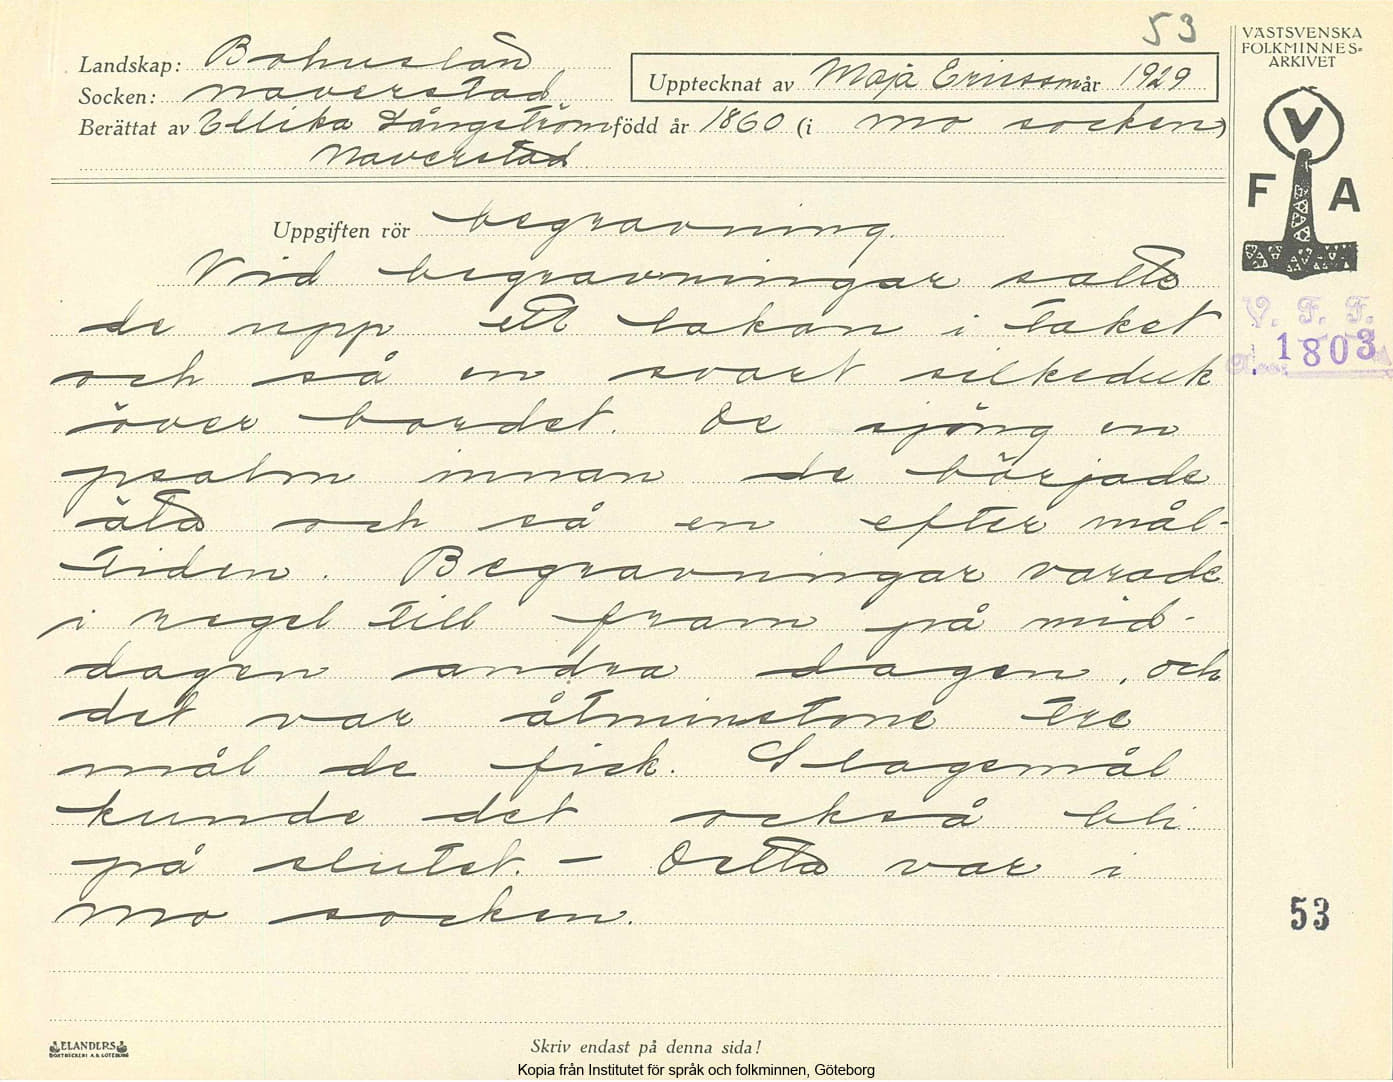 53
Landskap: Bohuslän
Socken: Naverstad
Upptecknat av Maja Ericsson år 1929
Berättat av Ellika Långström född år 1860 (i Mo socken)
Naverstad
VÄSTSVENSKA
FOLKMINNES-
ARKIVET
V
F A
V. F. F.
1803
Uppgiften rör begravning.
Vid begravningar satte
de upp ett lakan i taket
och så en svart silkeduk
över bordet. De sjöng en
psalm innan de började
äta och så en efter mål-
tiden. Begravningar varade
i regel till fram på mid-
dagen andra dagen, och
det var åtminstone tre
mål de fick. Slagsmål
kunde det också bli
på slutet. - Detta var i
Mo socken.
53
ELANDERS
BOKTRYCKERI A.B. GÖTEBORG
Skriv endast på denna sida!
Kopia från Institutet för språk och folkminnen, Göteborg